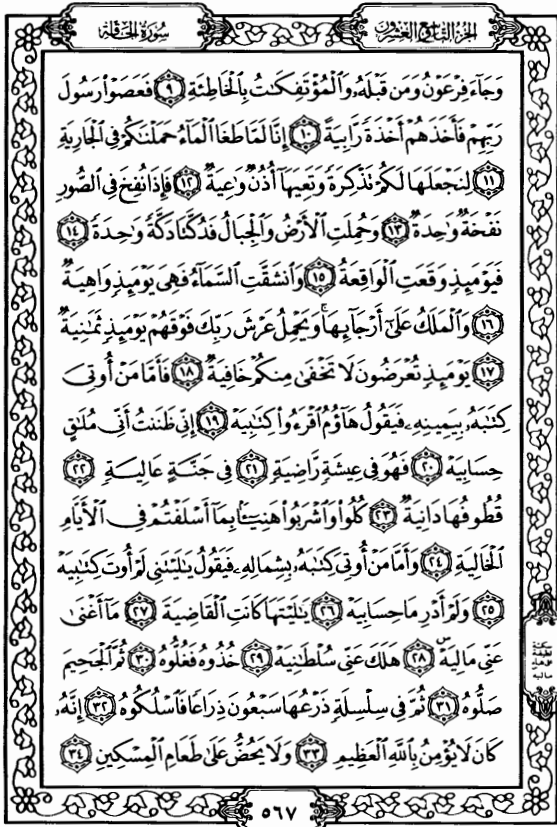 سُورَةُ الْحَاقَّةِ
الجُزْءُ التَّاسِعُ وَالعِشْرُونَ
وَجَآءَ فِرْعَوْنُ وَمَن قَبْلَهُۥ وَٱلْمُؤْتَفِكَـٰتُ بِٱلْخَاطِئَةِ ٩ فَعَصَوْا۟ رَسُولَ
رَبِّهِمْ فَأَخَذَهُمْ أَخْذَةً رَّابِيَةً ١٠ إِنَّا لَمَّا طَغَا ٱلْمَآءُ حَمَلْنَـٰكُمْ فِى ٱلْجَارِيَةِ
١١ لِنَجْعَلَهَا لَكُمْ تَذْكِرَةً وَتَعِيَهَآ أُذُنٌ وَٰعِيَةٌ ١٢ فَإِذَا نُفِخَ فِى ٱلصُّورِ
نَفْخَةٌ وَٰحِدَةٌ ١٣ وَحُمِلَتِ ٱلْأَرْضُ وَٱلْجِبَالُ فَدُكَّتَا دَكَّةً وَٰحِدَةً ١٤
فَيَوْمَئِذٍ وَقَعَتِ ٱلْوَاقِعَةُ ١٥ وَٱنشَقَّتِ ٱلسَّمَآءُ فَهِىَ يَوْمَئِذٍ وَاهِيَةٌ
١٦ وَٱلْمَلَكُ عَلَىٰٓ أَرْجَآئِهَا ۚ وَيَحْمِلُ عَرْشَ رَبِّكَ فَوْقَهُمْ يَوْمَئِذٍ ثَمَـٰنِيَةٌ
١٧ يَوْمَئِذٍ تُعْرَضُونَ لَا تَخْفَىٰ مِنكُمْ خَافِيَةٌ ١٨ فَأَمَّا مَنْ أُوتِىَ
كِتَـٰبَهُۥ بِيَمِينِهِۦ فَيَقُولُ هَآؤُمُ ٱقْرَءُوا۟ كِتَـٰبِيَهْ ١٩ إِنِّى ظَنَنتُ أَنِّى مُلَـٰقٍ
حِسَابِيَهْ ٢٠ فَهُوَ فِى عِيشَةٍ رَّاضِيَةٍ ٢١ فِى جَنَّةٍ عَالِيَةٍ ٢٢
قُطُوفُهَا دَانِيَةٌ ٢٣ كُلُوا۟ وَٱشْرَبُوا۟ هَنِيٓـًٔۢا بِمَآ أَسْلَفْتُمْ فِى ٱلْأَيَّامِ
ٱلْخَالِيَةِ ٢٤ وَأَمَّا مَنْ أُوتِىَ كِتَـٰبَهُۥ بِشِمَالِهِۦ فَيَقُولُ يَـٰلَيْتَنِى لَمْ أُوتَ كِتَـٰبِيَهْ
٢٥ وَلَمْ أَدْرِ مَا حِسَابِيَهْ ٢٦ يَـٰلَيْتَهَا كَانَتِ ٱلْقَاضِيَةَ ٢٧ مَآ أَغْنَىٰ
عَنِّى مَالِيَهْ ۜ ٢٨ هَلَكَ عَنِّى سُلْطَـٰنِيَهْ ٢٩ خُذُوهُ فَغُلُّوهُ ٣٠ ثُمَّ ٱلْجَحِيمَ
صَلُّوهُ ٣١ ثُمَّ فِى سِلْسِلَةٍ ذَرْعُهَا سَبْعُونَ ذِرَاعًا فَٱسْلُكُوهُ ٣٢ إِنَّهُۥ
كَانَ لَا يُؤْمِنُ بِٱللَّهِ ٱلْعَظِيمِ ٣٣ وَلَا يَحُضُّ عَلَىٰ طَعَامِ ٱلْمِسْكِينِ ٣٤
سكتة
لطيفة
على هاء
ماليه
٥٦٧